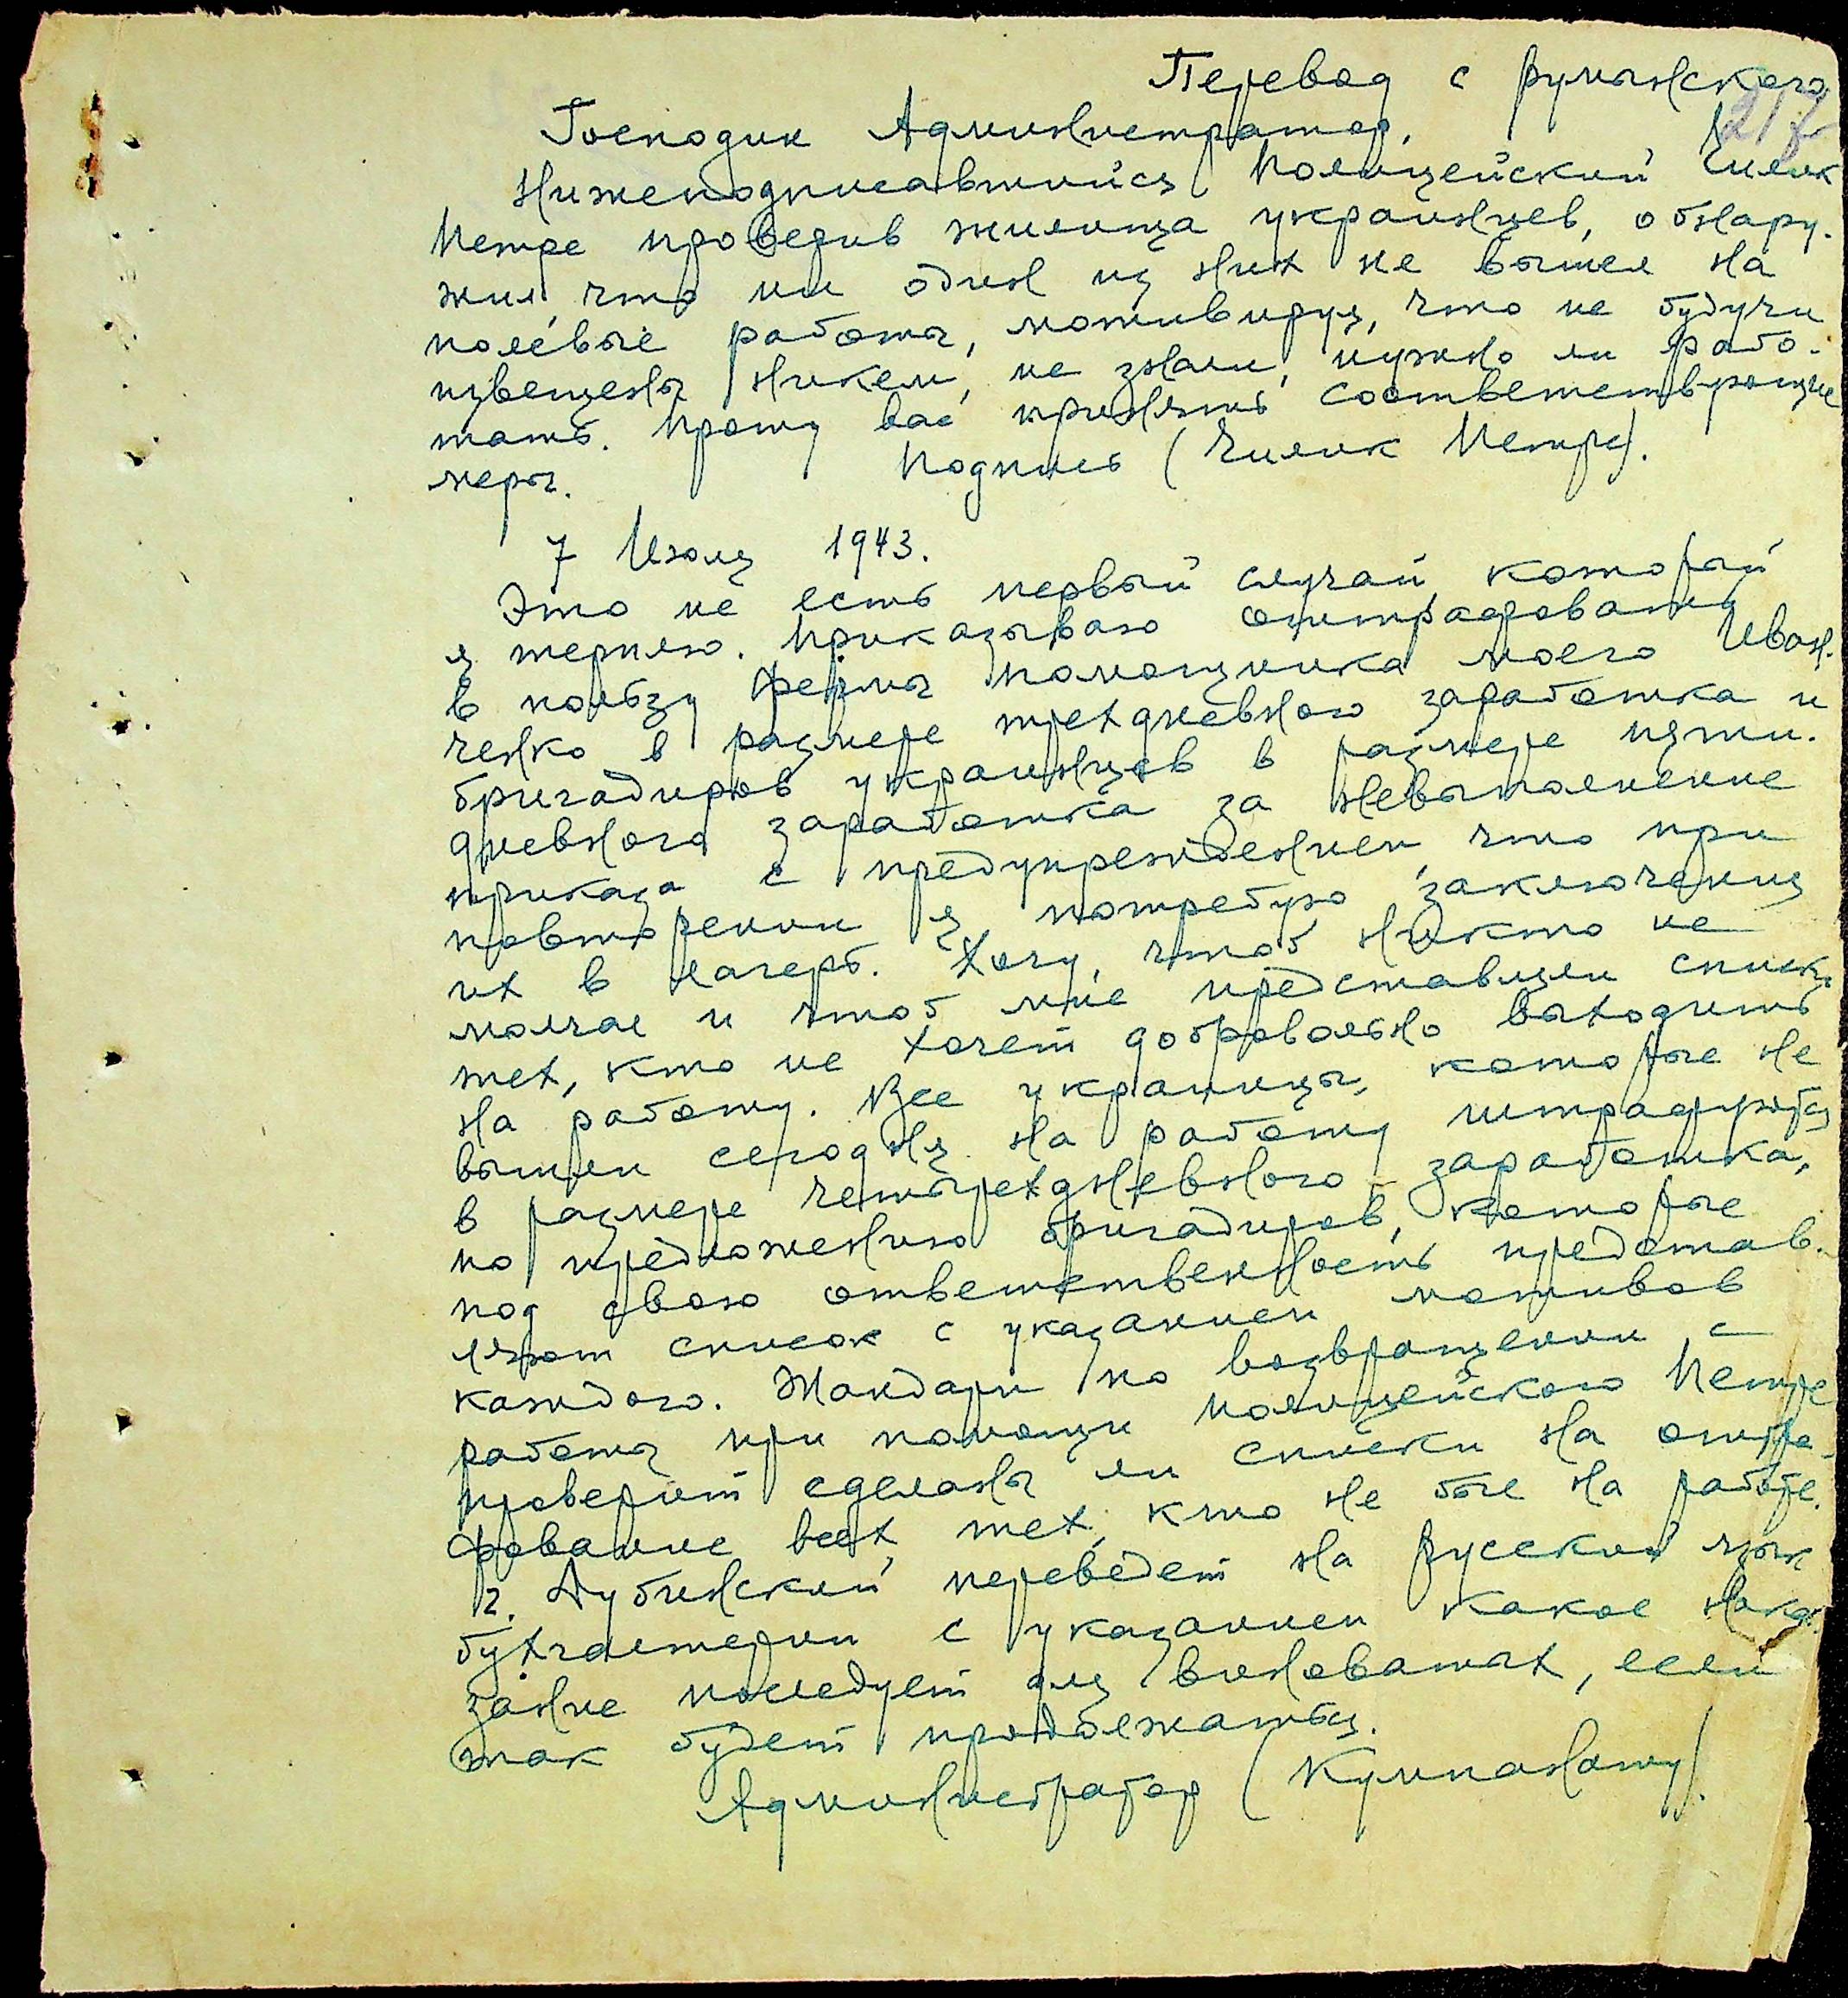 Перевод с румынского
217
Господин Администратор,
Нижеподписавшийся Полицейский Чилик
Петре проверив жилища украинцев, обнару-
жил, что ни один из них не вышел на
полевые работы, мотивируя, что не будучи
извещены никем, не знали, нужно ли рабо-
тать. Прошу вас принять соответствующие
меры.
Подпись (Чилик Петре).
7 Июля 1943.
Это не есть первый случай, который
я терплю. Приказываю оштрафовать
в пользу фермы помощника моего Иван-
ченко в размере трехдневного заработка и
бригадиров украинцев в размере пяти-
дневного заработка за невыполнение
приказа с предупреждением, что при
повторении я потребую заключения
их в лагерь. Хочу, чтоб никто не
молчал и чтоб мне представили списки
тех, кто не хочет добровольно выходить
на работу. Все украинцы, которые не
вышли сегодня на работу штрафуются
в размере четырехдневного заработка,
по предложению бригадиров, которые
под свою ответственность представ-
ляют список с указанием мотивов
каждого. Жандарм по возвращении с
работы при помощи полицейского Петре
проверит сделаны ли списки на оштра-
фование всех тех, кто не был на работе.
Г. Дубинский переведет на русский язык
бухгалтерии с указанием какое нака-
зание последует для виноватых, если
так будет продолжаться.
Администратор (Кумпанату).